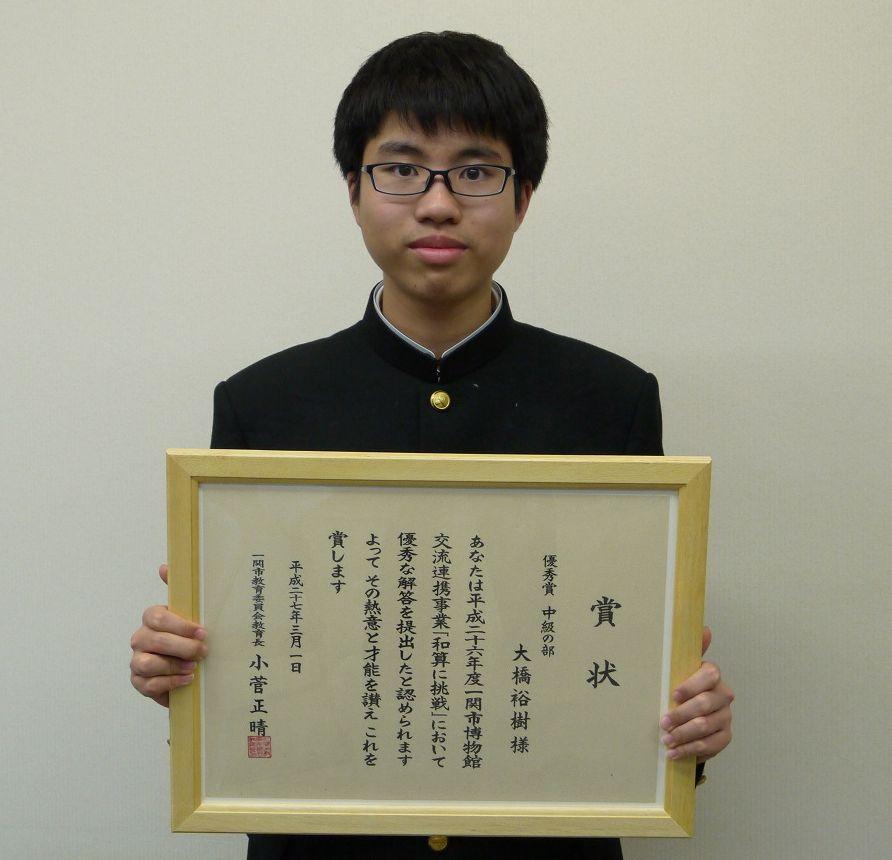 賞状
優秀賞 中級の部
大橋裕樹様
あなたは平成二十六年度一関市博物館
交流連携事業「和算に挑戦」において
優秀な解答を提出したと認められます
よって その熱意と才能を讃え これを
賞します
平成二十七年三月一日
一関市教育委員会教育長 小菅正晴